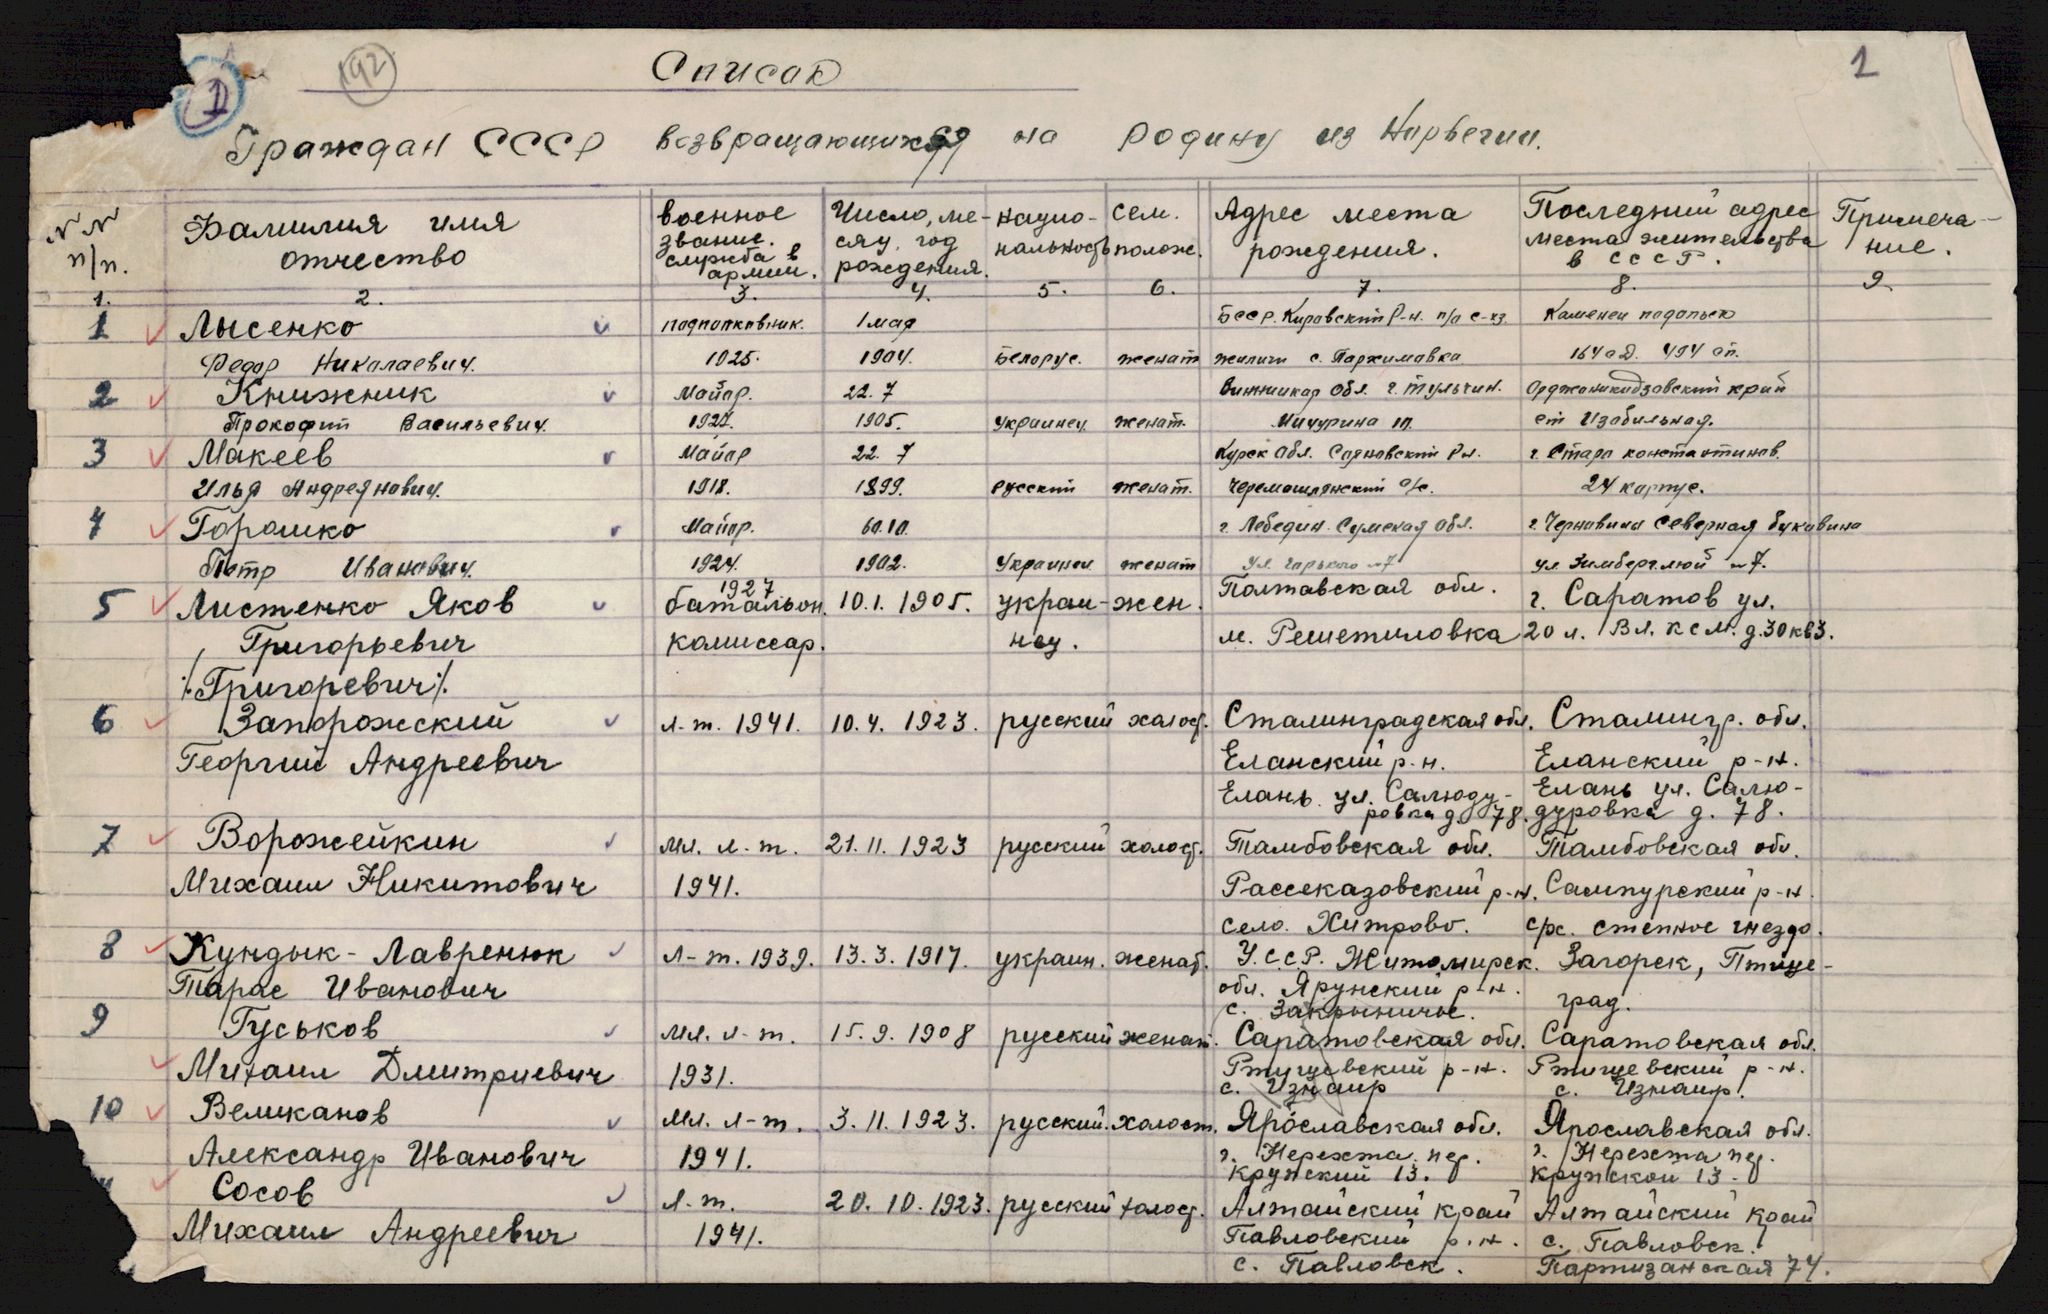 1
192
Список
1
Граждан СССР возвращающихся на родину из Норвегии.
№ № п/п. Фамилия имя отчество военное звание. служба в армии. Число, месяц, год рождения. национальность сем. полож. Адрес места рождения. Последний адрес места жительства в СССР. Примечание.
1. 2. 3. 4. 5. 6. 7. 8. 9.
1 Лысенко подполковник. 1 мая БССР. Кировский р-н. п/о с-хз. Каменец подольск
Федор Николаевич. 1925. 1904. Белорус. женат жиличи с. Пархимовка 164 ад. 494 ап.
2 Книжник Майор. 22. 7 Винницкая обл. г. Тульчин. Орджоникидзовский край
Прокофит Васильевич. 1927. 1905. украинец женат. Мичурина 10. ст Изобильная.
3 Макеев Майор 22. 7 Курск обл. Саяновский р-н. г. Старо константинов.
Илья Андреянович. 1918. 1899. русский женат. Черемошлянский с/с. 24 корпус.
4 Горошко Майор. 10.10 г. Лебедин. Сумская обл. г. Черновица Северная буковина
Петр Иванович. 1924. 1902. Украинец женат ул. Горького №7 ул. №7.
5 Листенко Яков 1927 10.1. 1905. украи- жен. Полтавская обл. г. Саратов ул.
Григорьевич батальон. комиссар. нец. м. Решетиловка 20 л. Вл. к с м. д. 30 кв 3.
/.Григоревич/.
6 Запорожский л-т. 1941. 10.4. 1923. русский холост. Сталинградская обл. Сталингр. обл.
Георгий Андреевич Еланский р-н. Еланский р-н.
Елань ул. Салюду- Елань ул. Салю-
ровка д. 78. дуровка д. 78.
7 Ворожейкин мл. л-т. 21. 11. 1923 русский холост. Тамбовская обл. Тамбовская обл.
Михаил Никитович 1941. Рассказовский р-н. Сампурский р-н.
село. Хитрово. с/х. степное гнездо.
8 Кундык-Лавренюк л-т. 1939. 13. 3. 1917. украин. женат. У.С.С.Р. Житомирск. Загорск, Птице-
Тарас Иванович обл. Ярунский р-н. град.
с. Закрыничье.
9 Гуськов мл. л-т. 15. 9. 1908 русский женат. Саратовская обл. Саратовская обл.
Михаил Дмитриевич 1931. Ртищевский р-н. Ртищевский р-н.
с. Изнаир с. Изнаир.
10 Великанов мл. л-т. 3. 11. 1923. русский. холост. Ярославская обл. Ярославская обл.
Александр Иванович 1941. г. Нерехта пер. г. Нерехта пер.
Крунский 13. Крупской 13.
Сосов л-т. 20. 10. 1923. русский холост. Алтайский край Алтайский край
Михаил Андреевич 1941. Павловский р.н. с. Павловск.
с. Павловск. Партизанская 74.